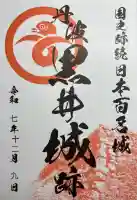 国史跡 続日本百名城
丹波
黒井城跡
令和 七年十二月 九日